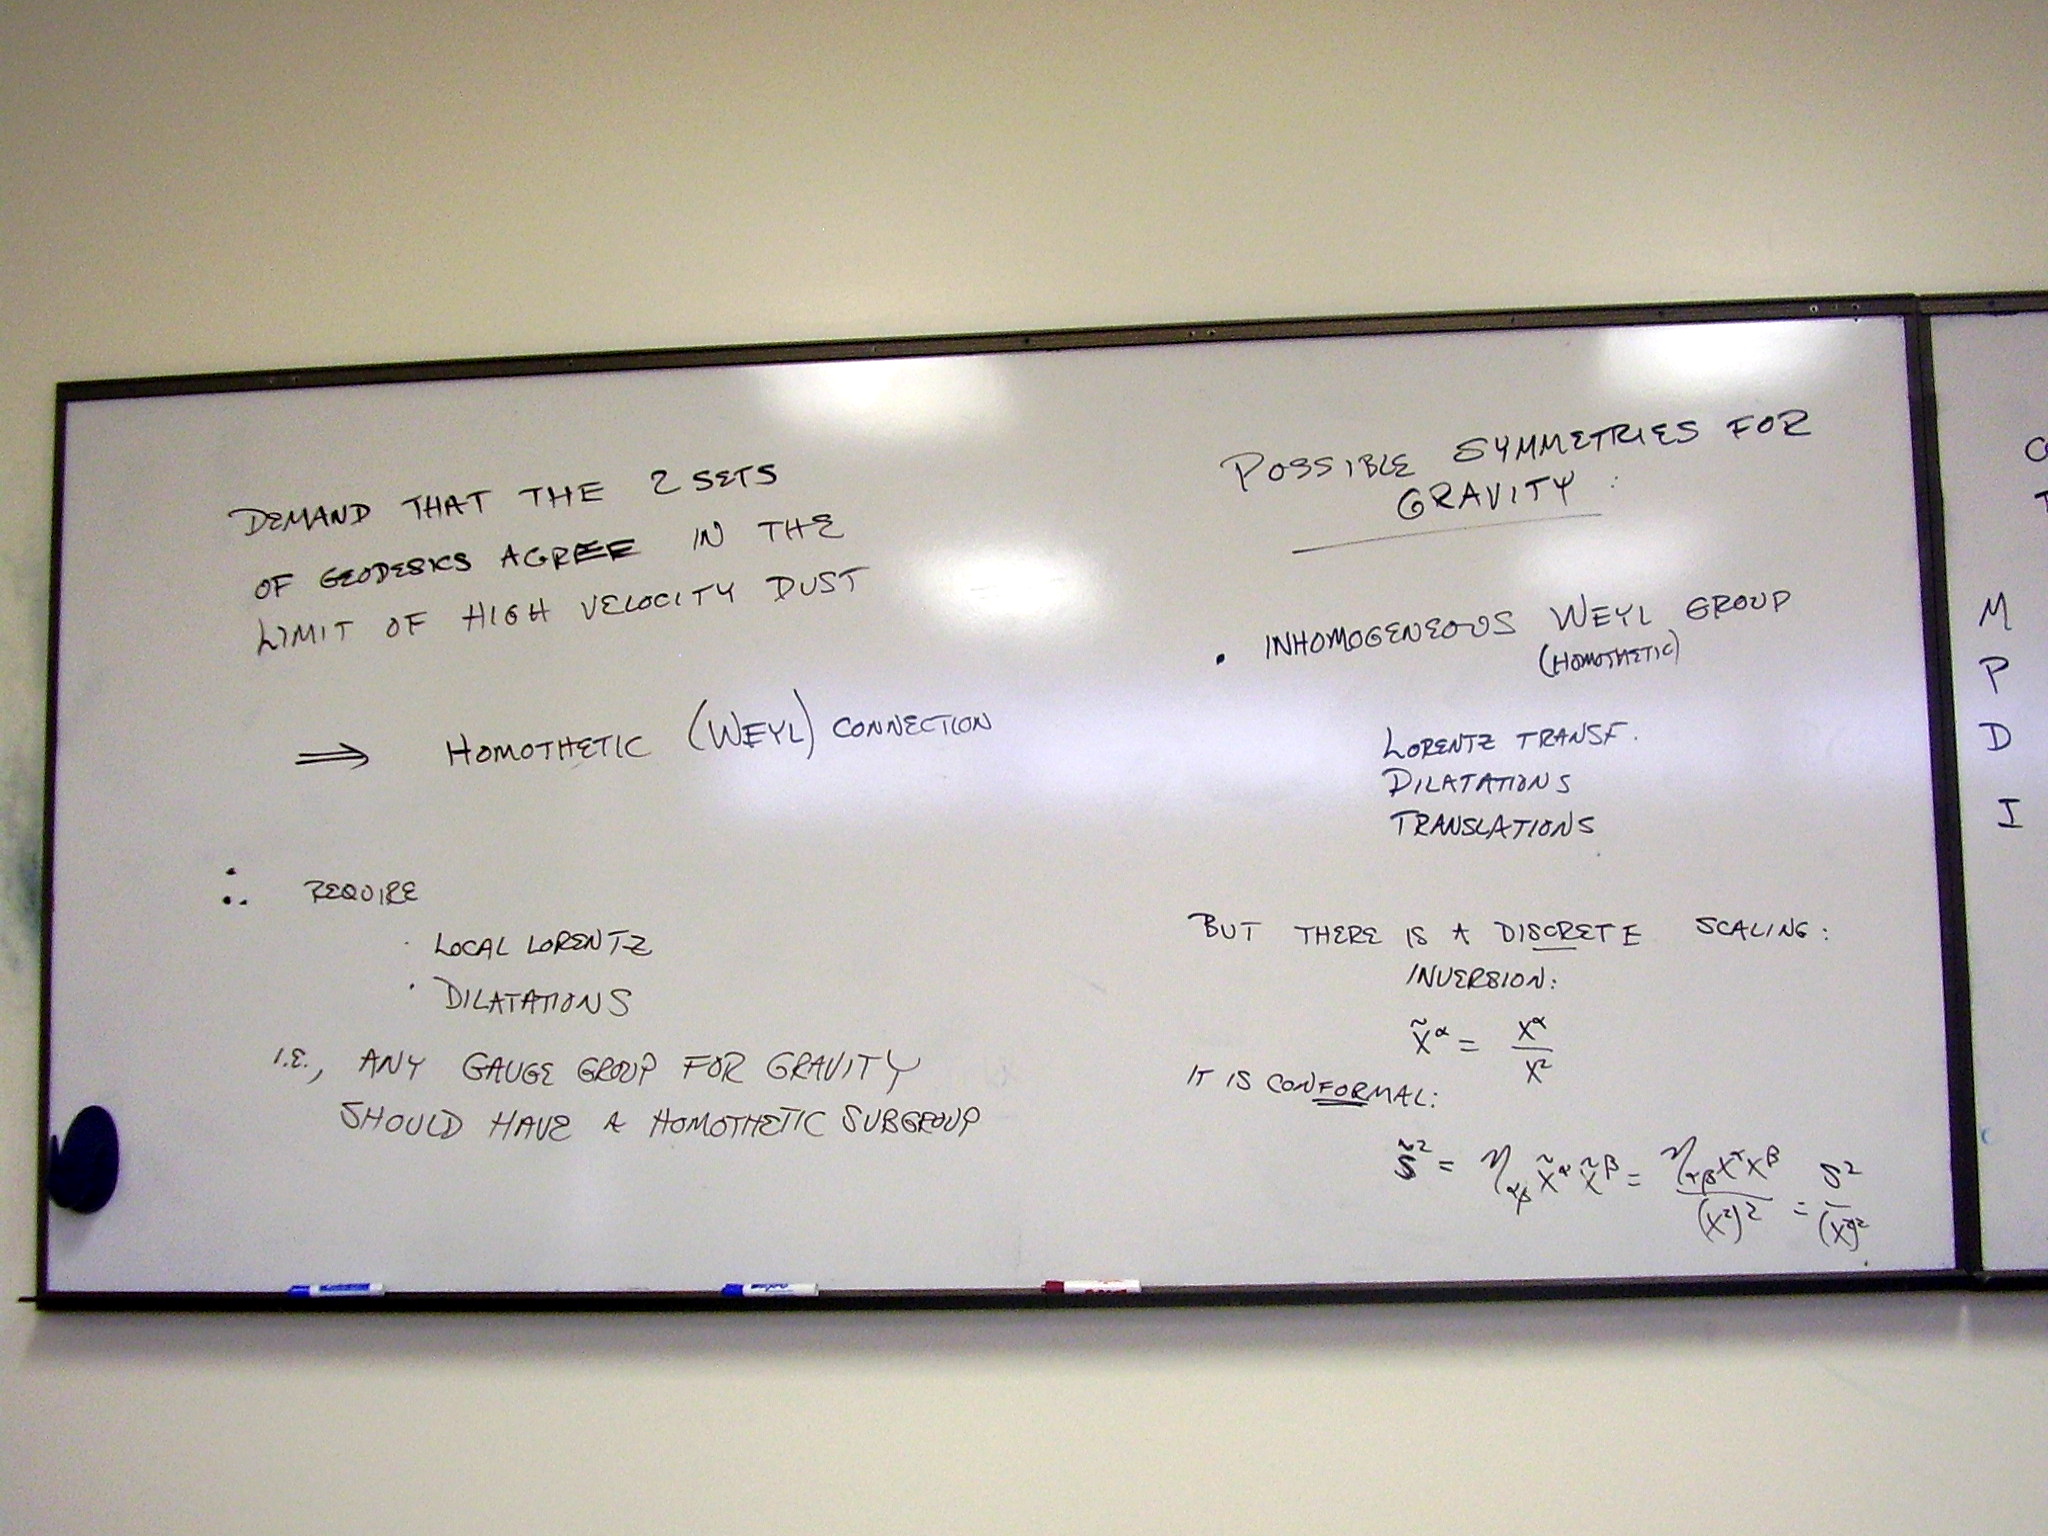 DEMAND THAT THE 2 SETS
OF GEODESICS AGREE IN THE
LIMIT OF HIGH VELOCITY DUST
⟹ HOMOTHETIC (WEYL) CONNECTION
∴ REQUIRE
· LOCAL LORENTZ
· DILATATIONS
I.E., ANY GAUGE GROUP FOR GRAVITY
SHOULD HAVE A HOMOTHETIC SUBGROUP
POSSIBLE SYMMETRIES FOR
GRAVITY :
• INHOMOGENEOUS WEYL GROUP
(HOMOTHETIC)
LORENTZ TRANSF.
DILATATIONS
TRANSLATIONS
BUT THERE IS A DISCRETE SCALING:
INVERSION:
x̃^α = x^α / x^2
IT IS CONFORMAL:
s̃^2 = η_αβ x̃^α x̃^β = η_αβ x^α x^β / (x^2)^2 = s^2 / (x^2)^2
M
P
D
I